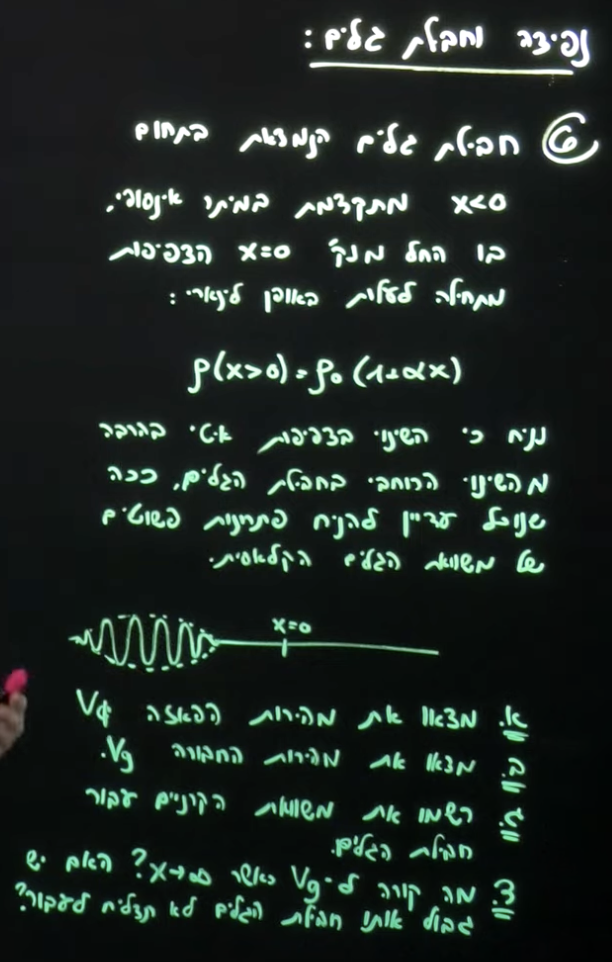 נפיצה וחבילת גלים:
⑥ חבילת גלים הנמצאת בתחום
x<0 מתקדמת במיתר אינסופי,
בו החל מנק' x=0 הצפיפות
מתחילה לעלות באופן לינארי:
ρ(x>0)=ρ₀(1+αx)
נניח כי השינוי בצפיפות איטי בהרבה
מהשינוי הרוחבי בחבילת הגלים, ככה
שנוכל עדיין להניח פתרונות פשוטים
של משוואת הגלים הקלאסית.
x=0
א. מצאו את מהירות הפאזה Vφ
ב. מצאו את מהירות החבורה Vg.
ג. רשמו את משוואת הקרניים עבור
חבילת הגלים.
ד. מה קורה ל-Vg כאשר x→∞? האם יש
גבול אותו חבילת הגלים לא תצליח לעבור?